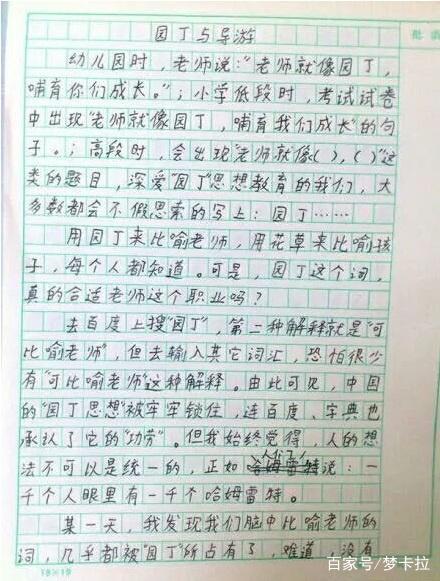 园丁与导游
幼儿园时，老师说："老师就像园丁，
哺育你们成长。"；小学低段时，考试试卷
中出现"老师就像园丁，哺育我们成长"的句
子。；高段时，会出现"老师就像( )，( )"这
类的题目，深爱"园丁"思想教育的我们，大
多数都会不假思索的写上：园丁……
用园丁来比喻老师，用花草来比喻孩
子，每个人都知道。可是，园丁这个词，
真的合适老师这个职业吗？
去百度上搜"园丁"，第二种解释就是"可
比喻老师"，但去输入其它词汇，恐怕很少
有"可比喻老师"这种解释。由此可见，中国
的"园丁思想"被牢牢锁住，连百度、字典也
承认了它的"功劳"。但我始终觉得，人的想
法不可以是统一的，正如人们说：一
千个人眼里有一千个哈姆雷特。
某一天，我发现我们脑中比喻老师的
词，几乎都被"园丁"所占有了，难道，没有
18×19
百家号/梦卡拉